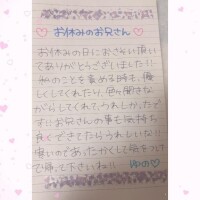 お休みのお兄さん
お休みの日におさそい頂い
てありがとうございました!!
私のことを責める時も、優
しくしてくれたり、
がらしてくれて、うれしかったで
す!!お兄さんの事も気持ち
良くできてたらうれしいな!!
寒いのであったかくして
帰って下さいね!!
ゆの♡